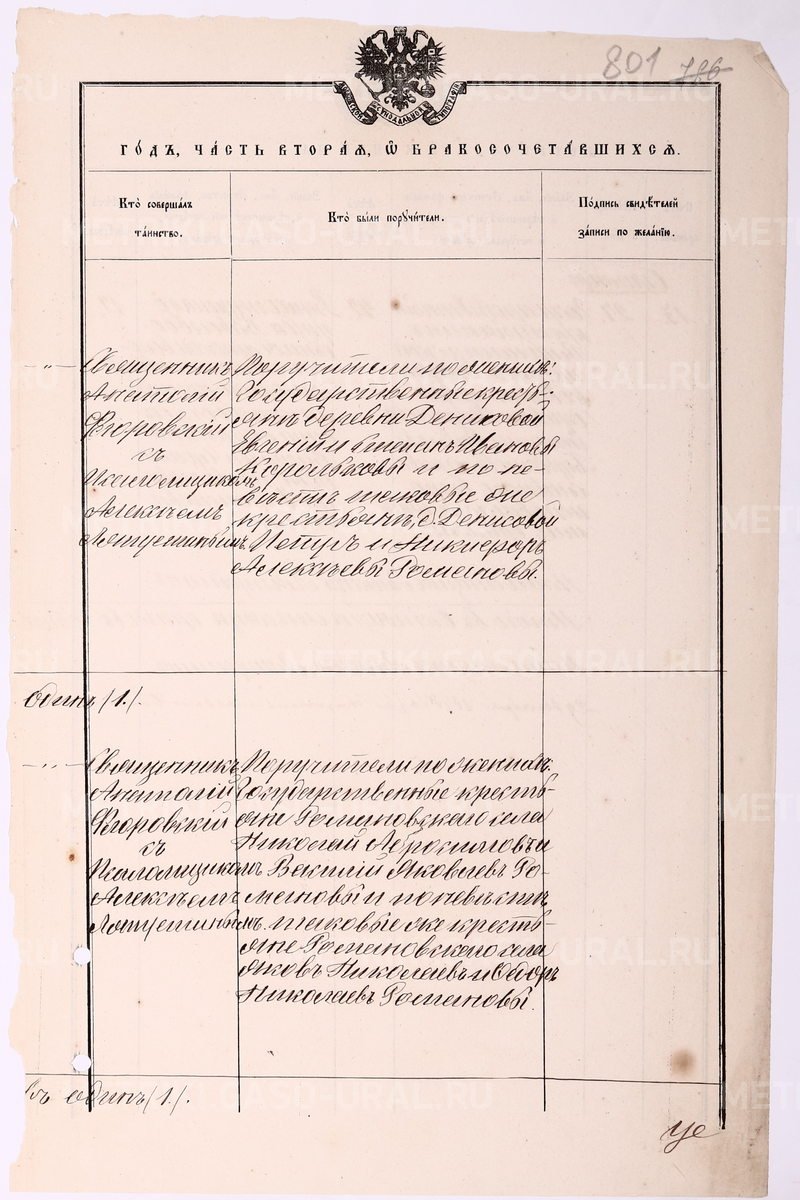 801 786
МОСКОВСКОЙ СѴНОДАЛЬНОЙ ТИПОГРАФІИ
ГО́ДЪ, ЧА́СТЬ ВТОРА́Я, Ѽ БРАКОСОЧЕТА́ВШИХСЯ.
Кто̀ соверша́лъ
та́инство.
Кто̀ бы́ли поручи́тели.
По́дпись свидѣ́телей
за́писи по жела́нїю.
Священникъ
Анатолій
Флоровскій
съ
Псаломщикомъ
Алексѣемъ
Лятушинымъ.
Поручители по женихѣ:
Государственные кресть-
яне деревни Денисовой
Евгеній и Степанъ Ивановы
Корольковы и по не-
вѣстѣ таковые же
крестьяне, д. Денисовой
Петръ и Никифоръ
Алексѣевы Романовы.
Одинъ /1./.
Священникъ
Анатолій
Флоровскій
съ
Псаломщикомъ
Алексѣемъ
Лятушинымъ.
Поручители по женихѣ.
Государственные кресть-
яне Романовскаго села
Николай Абросимовъ и
Василій Яковлевъ Ро-
мановы и по невѣстѣ
таковые же кресть-
яне Романовскаго села
Яковъ Николаевъ и Ѳедоръ
Николаевъ Романовы.
ъ одинъ /1./.
METRIKI.GASO-URAL.RU